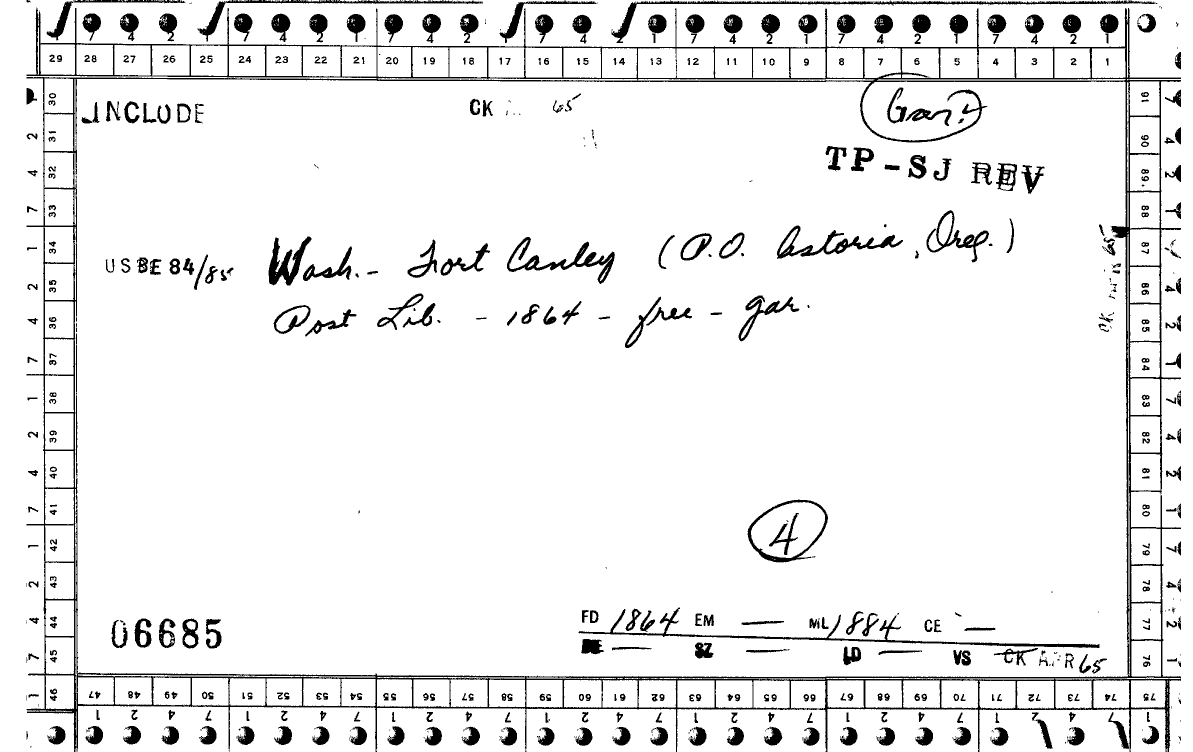 7 4 2 1 7 4 2 1 7 4 2 1 7 4 2 1 7 4 2 1 7 4 2 1 7 4 2 1
29 28 27 26 25 24 23 22 21 20 19 18 17 16 15 14 13 12 11 10 9 8 7 6 5 4 3 2 1
INCLUDE CK 65
TP-SJ REV
USBE 84/85 Wash. - Fort Canley (P.O. Astoria, Oreg.)
Post Lib. - 1864 - free - gar.
4
06685
FD 1864 EM — ML 1884 CE —
— SZ — LD — VS CK APR 65
30 31 32 33 34 35 36 37 38 39 40 41 42 43 44 45 46
91 90 89. 88 87 86 85 84 83 82 81 80 79 78 77 76
47 48 49 50 51 52 53 54 55 56 57 58 59 60 61 62 63 64 65 66 67 68 69 70 71 72 73 74 75
1 2 4 7 1 2 4 7 1 2 4 7 1 2 4 7 1 2 4 7 1 2 4 7 1 2 4 7 1